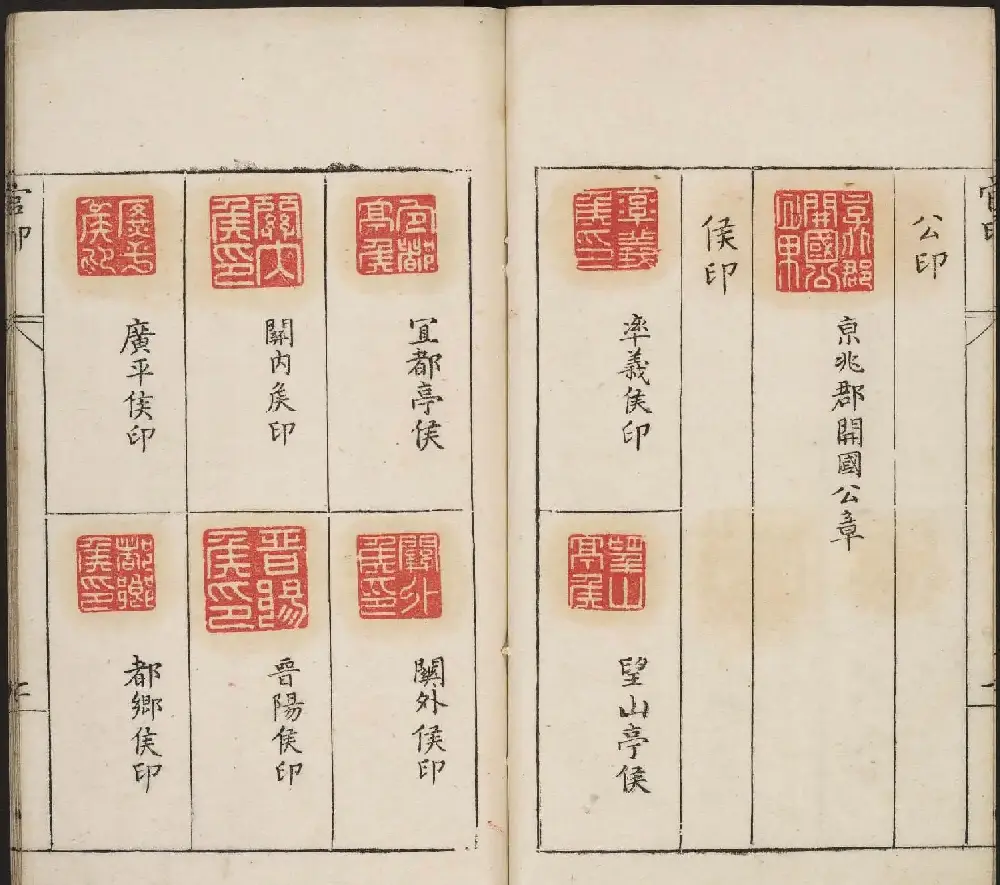 公印
京兆郡開國公章
侯印
率義侯印
望山亭侯
宜都亭侯
關外侯印
關内侯印
晉陽侯印
廣平侯印
都鄉侯印